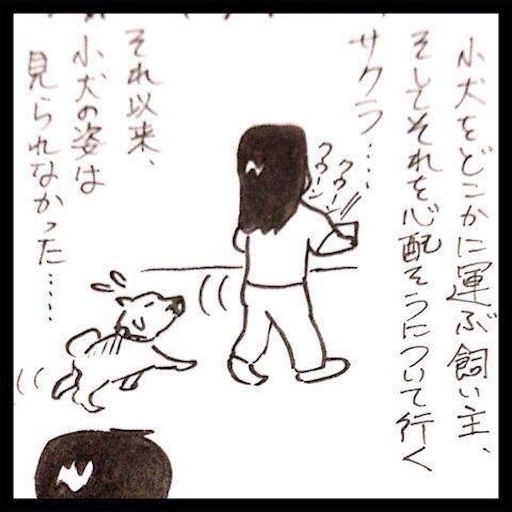 小犬をどこかに運ぶ飼い主、
そしてそれを心配そうについて行く
サクラ……
クゥーン
クゥーン
それ以来、
小犬の姿は
見られなかった……